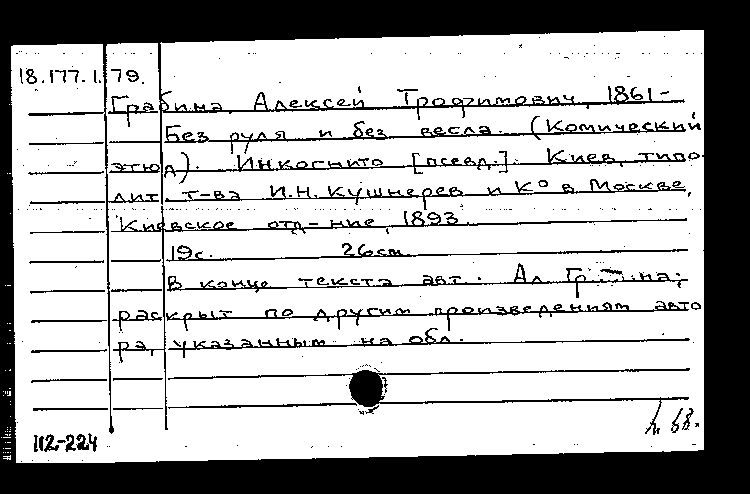 18.177.1.79.
Грабина, Алексей Трофимович, 1861-
Без руля и без весла. (Комический
этюд). Инкогнито [псевд.]. Киев, типо-
лит. т-ва И.Н. Кушнерев и К° в Москве,
Киевское отд-ние, 1893.
19с. 26см.
В конце текста авт.: Ал. Гр на;
раскрыт по другим произведениям авто
ра, указанным на обл.
112-224